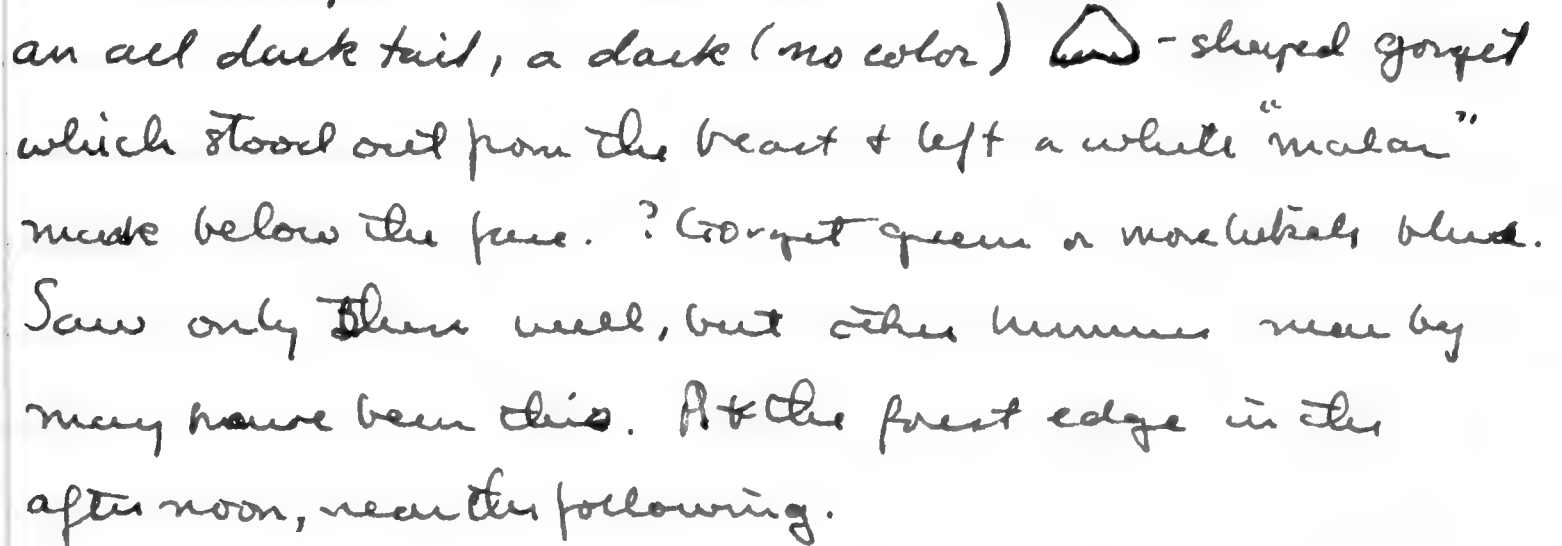 an all dark tail, a dark (no color) -shaped gorget
which stood out from the breast & left a white "malar"
mark below the face. ? Gorget green or more likely blue.
Saw only well, but other hummers near by
may have been this. At the forest edge in the
afternoon, near the following.